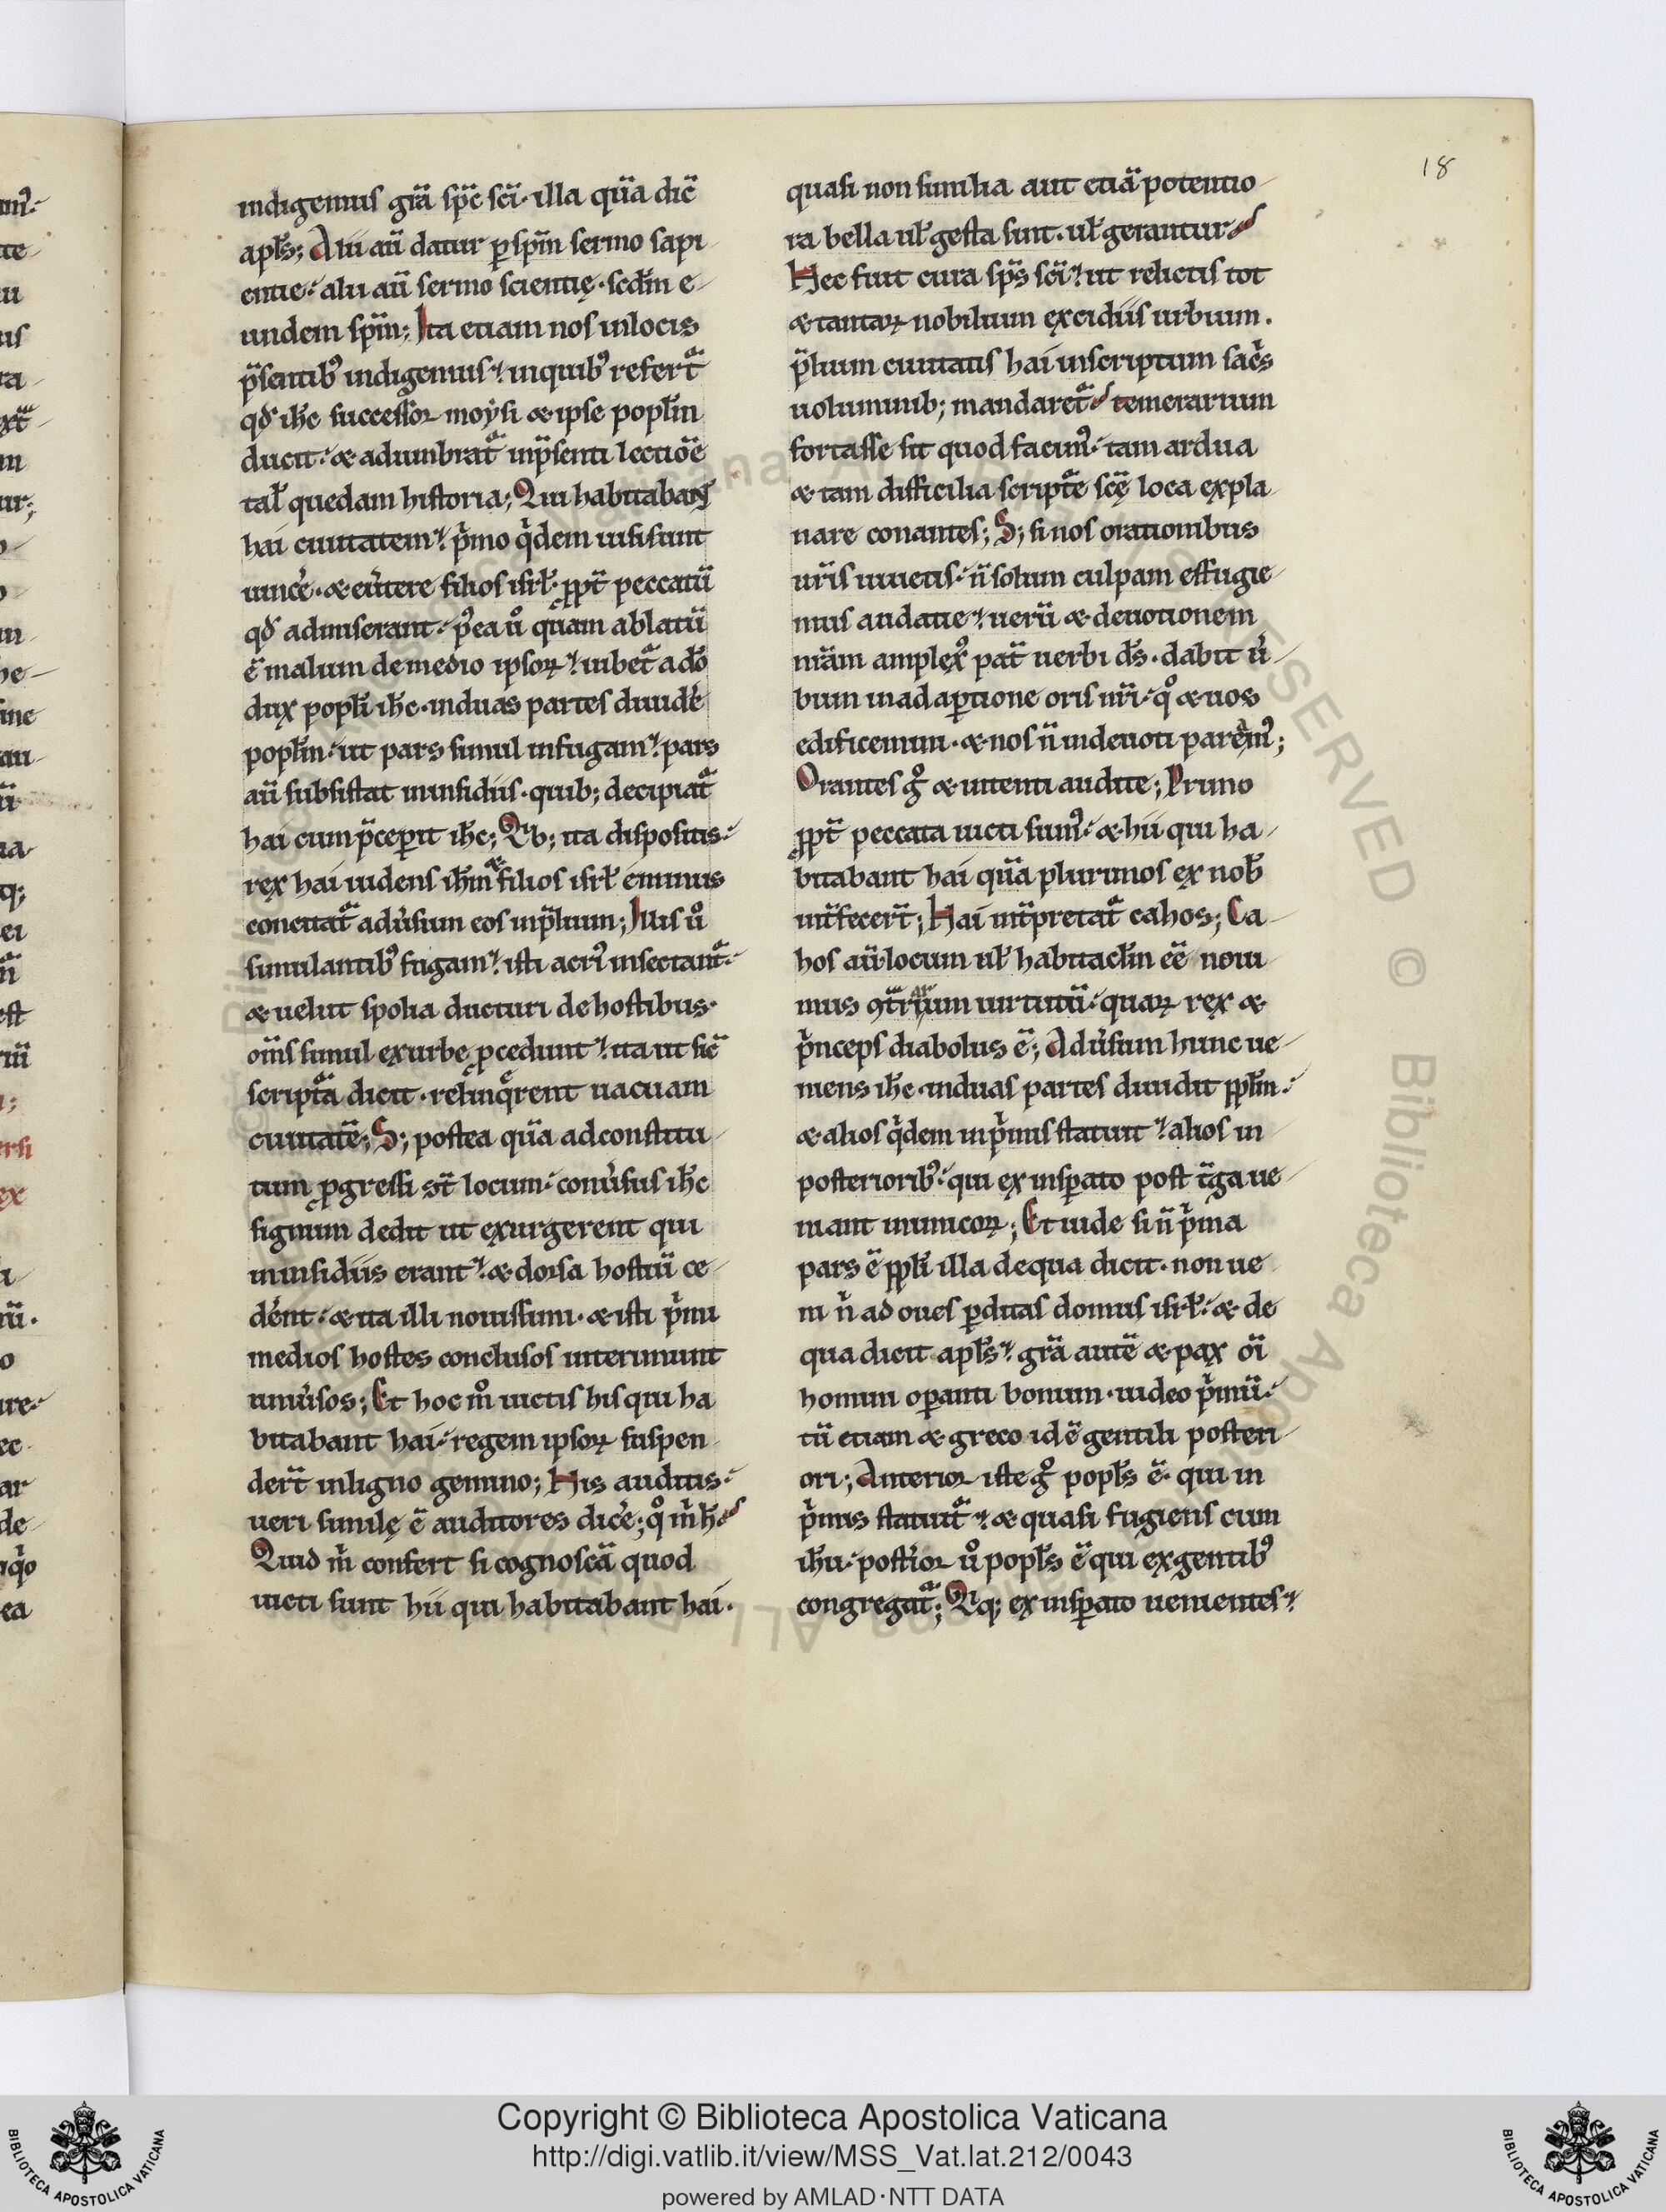 18
indigemus gr̄a sp̄c sc̄i · illa qua̅ dic̄
apl̄s; Alii au̅ datur ꝑ sp̄m sermo sapi
entie · alii au̅ sermo scientię · scd̄m e
undem sp̄m; Ita etiam nos in locis
p̄sentib᷒ indigemus · in quib᷒ refert᷑
qd̄ ih̄c successor moysi & ipse popl̄m
ducit · & adumbrat᷑ in p̄senti lectio̅e
tal̄ quedam historia; Qui habitabant
hai ciuitatem · p̍mo q̍dem uisi sunt
uince̍ · & eu̍tere filios isrl̄ · ꝓpt̄ peccatu̅
qd̄ admiserant · p᷒ea ů quam ablatu̅
e̅ malum de medio ipsoꝝ · iubet᷑ a do̅
dux popl̄i ih̄c · in duas partes diuide̍
popl̄m · ut pars simul in fugam · pars
au̅ subsistat in insidiis · quib; decipiat᷑
hai cum p̄ceꝑit ih̄c; Qb; ita dispositis ·
rex hai uidens ih̄m & filios isrl̄ eminus
concitat᷑ adu̍sum eos in p̄lium; Illis ů
simulantib᷒ fugam · isti acri᷒ insectant᷑ ·
& uelut spolia ducturi de hostibus ·
om̄s simul ex urbe ꝓcedunt · ita ut sic̄
script᷑a dicit · relinq̍rent uacuam
ciuitate̅; S; postea qua̅ ad constitu
tum ꝓgressi st̄ locum · conu̍sus ih̄c
signum dedit ut exurgerent qui
in insidiis erant · & dorsa hostiu̅ ce
de̍nt · & ita illi nouissimi · & isti p̍mi
medios hostes conclusos interimunt
uniu̍sos; Et hoc m̊ uictis his qui ha
bitabant hai · regem ipsoꝝ suspen
dert̄ in ligno gemino; His auditis ·
ueri similę e̅ auditores dice̍; q̊ m̍ h᷒
Quid m̍ confert si cognosca̅ quod
uicti sunt hii qui habitabant hai ·
quasi non similia aut etia̅ potentio
ra bella ul̄ gesta sint · ul̄ gerantur
Hec fuit cura sp̄s sc̄i · ut relictis tot
& tantaꝝ nobilium excidiis urbium ·
p̄lium ciuitatis hai inscriptum sac̍s
uoluminib; mandaret᷑ temerarium
fortasse sit quod facim᷒ · tam ardua
& tam difficilia script᷑e sc̄ę loca expla
nare conantes; S; si nos orationibus
ur̄is iuuetis · n̄ solum culpam effugie
mus audatie · ueru̅ & deuotionem
nr̄am amplex᷒ pat̄ uerbi ds̄ · dabit u̍
bum in adaꝑtione oris nr̄i · q̊ & uos
edificemini · & nos n̄ indeuoti parem᷒;
Orantes g̊ & intenti audite; Primo
ꝓpt̄ peccata uicti sum᷒ · & hii qui ha
bitabant hai qua̅ plurimos ex nob̄
int̄fecert̄; Hai int̄pretat᷑ cahos; Ca
hos au̅ locum ul̄ habitacl̄m e̅e noui
mus ꝯtrarium uirtutu̅ · quaꝝ rex &
p̍nceps diabolus e̅; Adu̍sum hunc ue
niens ih̄c · in duas partes diuidit ppl̄m ·
& alios q̍dem in p̍mis statuit · alios in
posteriorib᷒ · qui ex insꝑato post t̄ga ue
niant inimicoꝝ; Et uide si n̄ p̍ma
pars e̅ ppl̄i illa de qua dicit · non ue
ni n̍ ad oues ꝑditas domus isrl̄ · & de
qua dicit apl̄s · gr̄a aute̅ & pax oi̅
homini oꝑanti bonum · iudeo p̍mu̅ ·
tu̅ etiam & greco id e̅ gentili posteri
ori; Anterior iste g̊ popl̄s e̅ · qui in
p̍mis statuit᷑ · & quasi fugiens cum
ih̄u · post̍ior ů popl̄s e̅ qui ex gentib᷒
congregat᷑; Qq; ex insꝑato uenientes ·
Copyright © Biblioteca Apostolica Vaticana
http://digi.vatlib.it/view/MSS_Vat.lat.212/0043
powered by AMLAD · NTT DATA
BIBLIOTECA APOSTOLICA VATICANA
BIBLIOTECA APOSTOLICA VATICANA